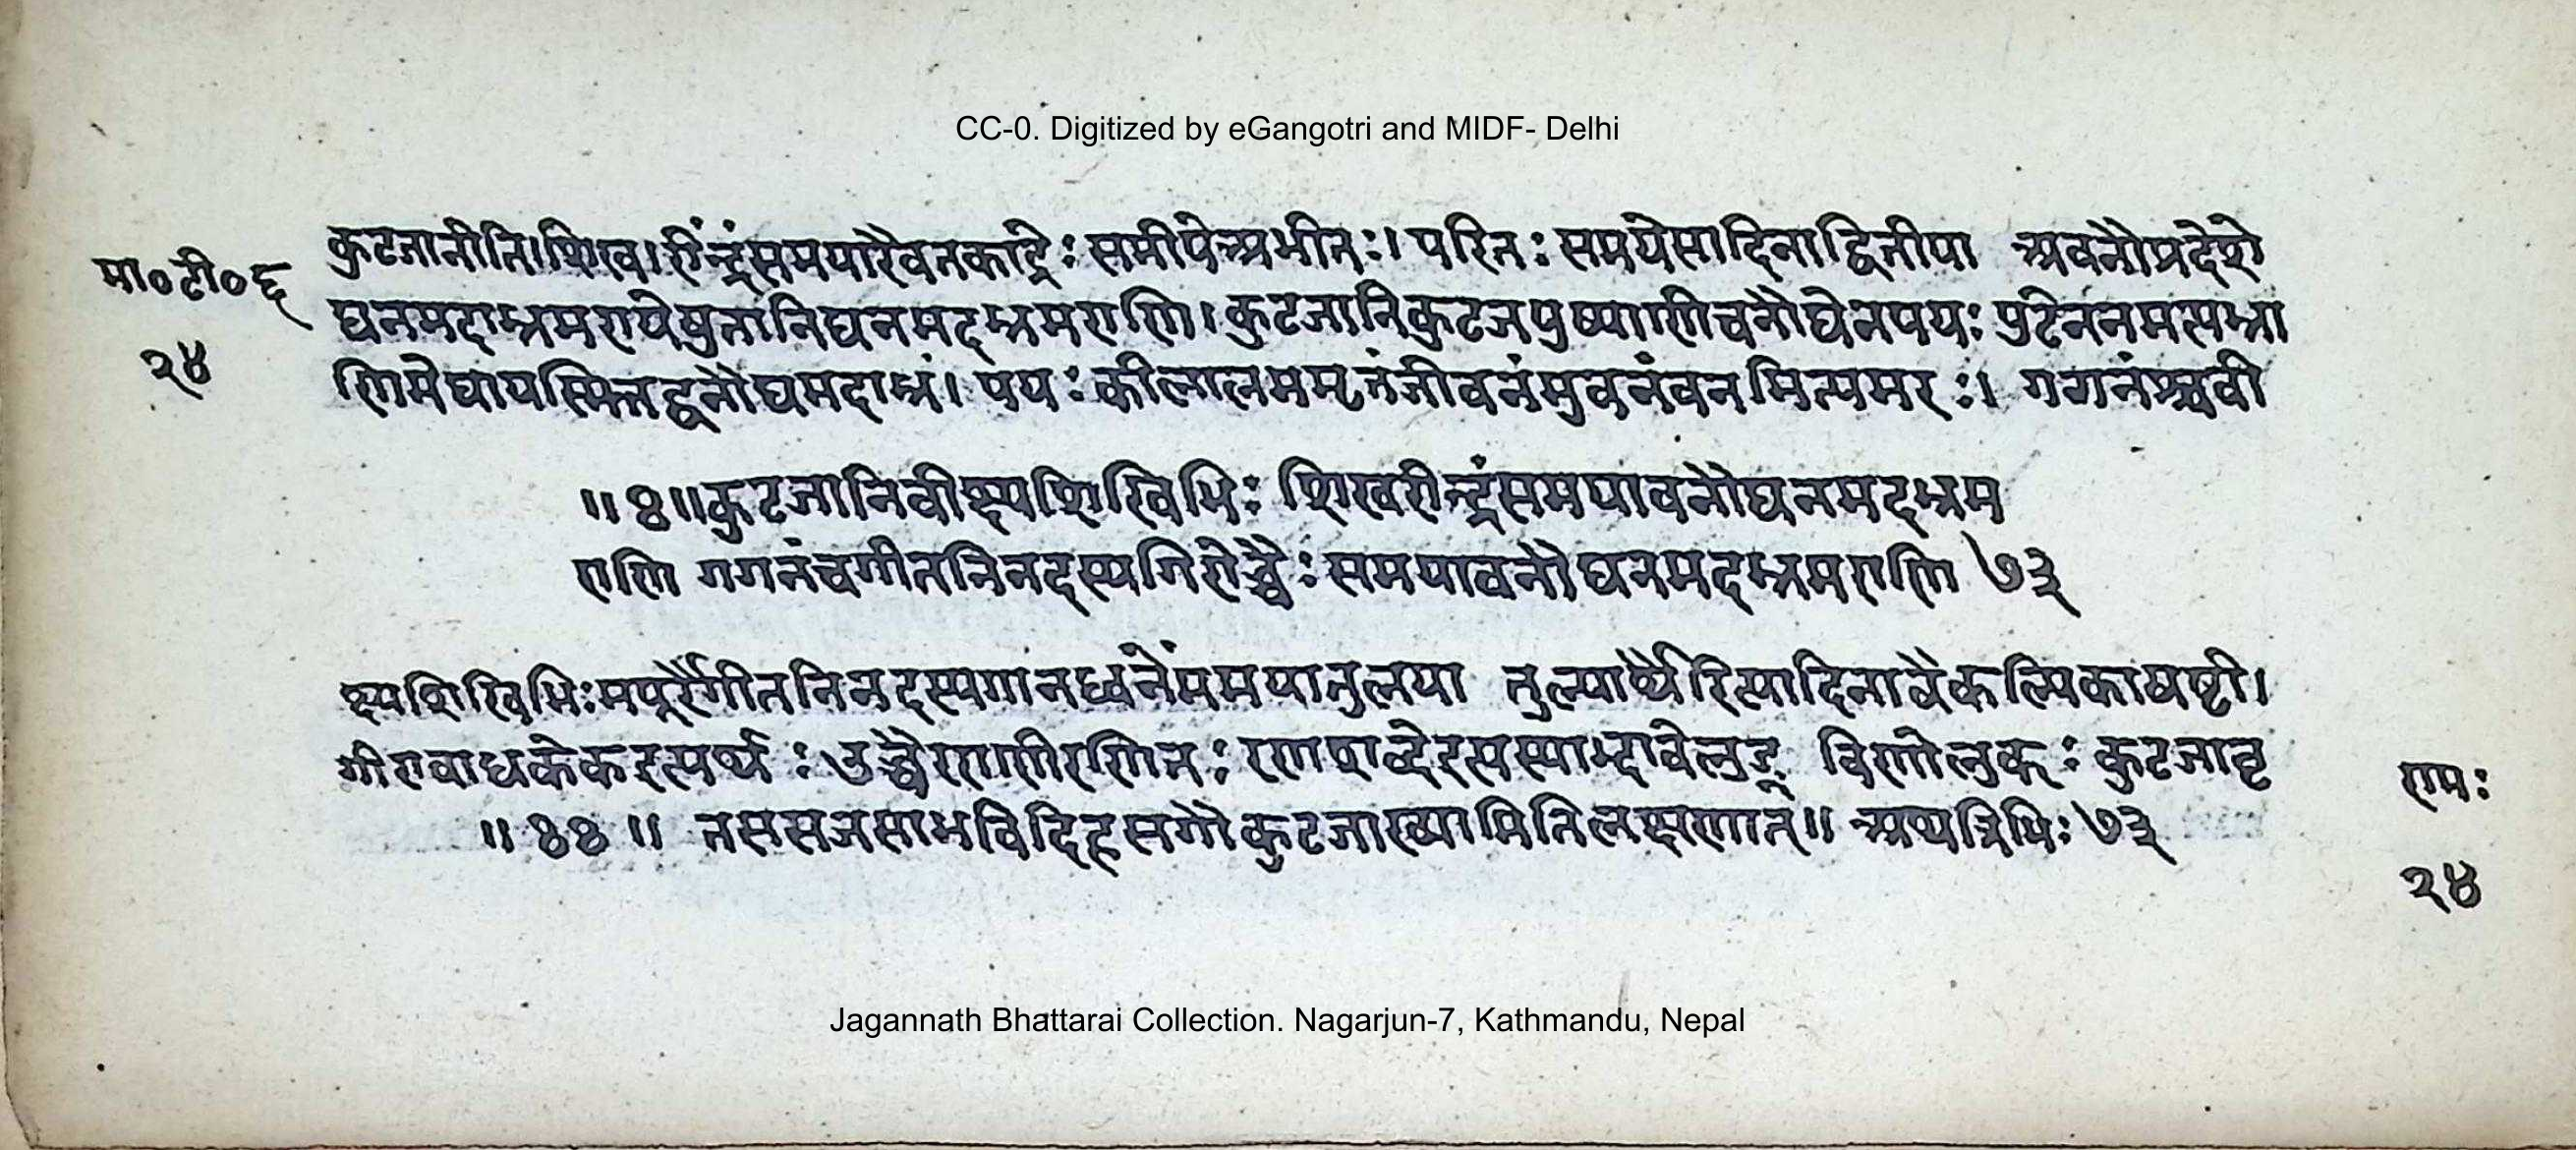 CC-0. Digitized by eGangotri and MIDF- Delhi
मा०टी०६
२४
कुटजानीति।शिख।रींन्द्रंसमयारैवतकाद्रेः समीपेअभीतः। परितः समयेसादिनाद्वितीया अवनौप्रदेशे
घनमदाभ्रमरायेषुतानिघनमदभ्रमराणि। कुटजानिकुटजपुष्पाणीचनौघेनपयः पुटेननमत्पभ्रा
णिमेघायस्मिंतद्वनौघमदाभ्रं। पयः कीलालममृतंजीवनंभुवनंवनमित्यमरः। गगनंश्चवी
॥४॥कुटजानिवीक्ष्यशिखिभिः शिखरीन्द्रंसमयावनौघनमदभ्रम
राणि गगनंचगीतनिनदस्यगिरोच्चैः समयावनौघनमदभ्रमराणि ७३
क्ष्यशिखिभिःमयूरैर्गीतनिनदस्यगानध्वनेंसमयातुलया तुल्यार्थैरित्यादिनावैकल्पिकाषष्टी।
गीरावाधकेकइत्यर्थः उच्चैरराणीरणितः रणशब्देइत्यस्माद्भावेलुङ् चिणोलुकः कुटजावृ
॥४४॥ तससजसाभवेदिहसगौकुटजाख्यामितिलक्षणात्॥ अथत्रिभिः ७३
रामः
२४
Jagannath Bhattarai Collection. Nagarjun-7, Kathmandu, Nepal